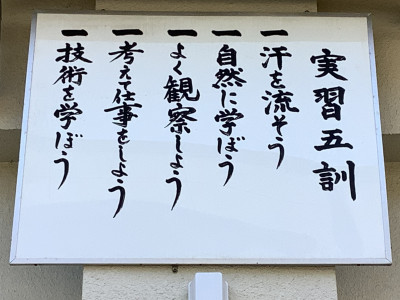 実習五訓
一 汗を流そう
一 自然に学ぼう
一 よく観察しよう
一 考えて仕事をしよう
一 技術を学ぼう